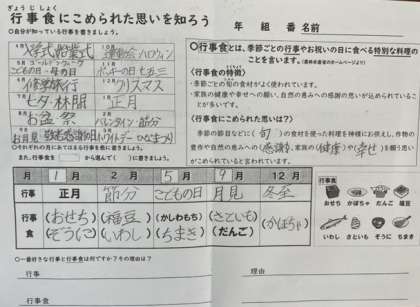 ぎょう じ しょく
行事食にこめられた思いを知ろう
年 組 番 名前
○自分が知っている行事を書きましょう。
4月 入学式 始業式
5月 ゴールデンウィーク こどもの日・母の日
6月 修学旅行
7月 七夕・林間
8月 お盆 祭
9月 お月見 敬老感謝
10月 運動会 ハロウィン
11月 ポッキーの日 七五三
12月 クリスマス
1月 正月
2月 バレンタイン・節分
3月 ホワイトデー ひなまつり
○それぞれの月にあてはまる行事を表に書きましょう。
また、行事食を から選んで( )に書きましょう。
○行事食とは、季節ごとの行事やお祝いの日に食べる特別な料理の
ことを言います。(農林水産省のホームページより)
〈行事食の特徴〉
・季節ごとの旬の食材がよく使われている。
・家族の健康や幸せへの願い、自然の恵みへの感謝の思いが込められていること
が多いです。
〈行事食にこめられた思いは?〉
季節の節目などに( 旬 )の食材を使った料理を神様にお供えし、作物の
豊作や自然の恵みへの(感謝)、家族の(健康)や(幸せ)を願う思い
がこめられていると言われています。
月 1月 2月 5月 9月 12月
行事 正月 節分 こどもの日 月見 冬至
行事食 (おせち) (福豆) (かしわもち) (さといも) (かぼちゃ)
(ぞうに) (いわし) (ちまき) (だんご)
行事食
おせち かぼちゃ だんご 福豆
いわし さといも ぞうに ちまき
○一番好きな行事と行事食は何ですか?その理由は?
行事
行事食
理由